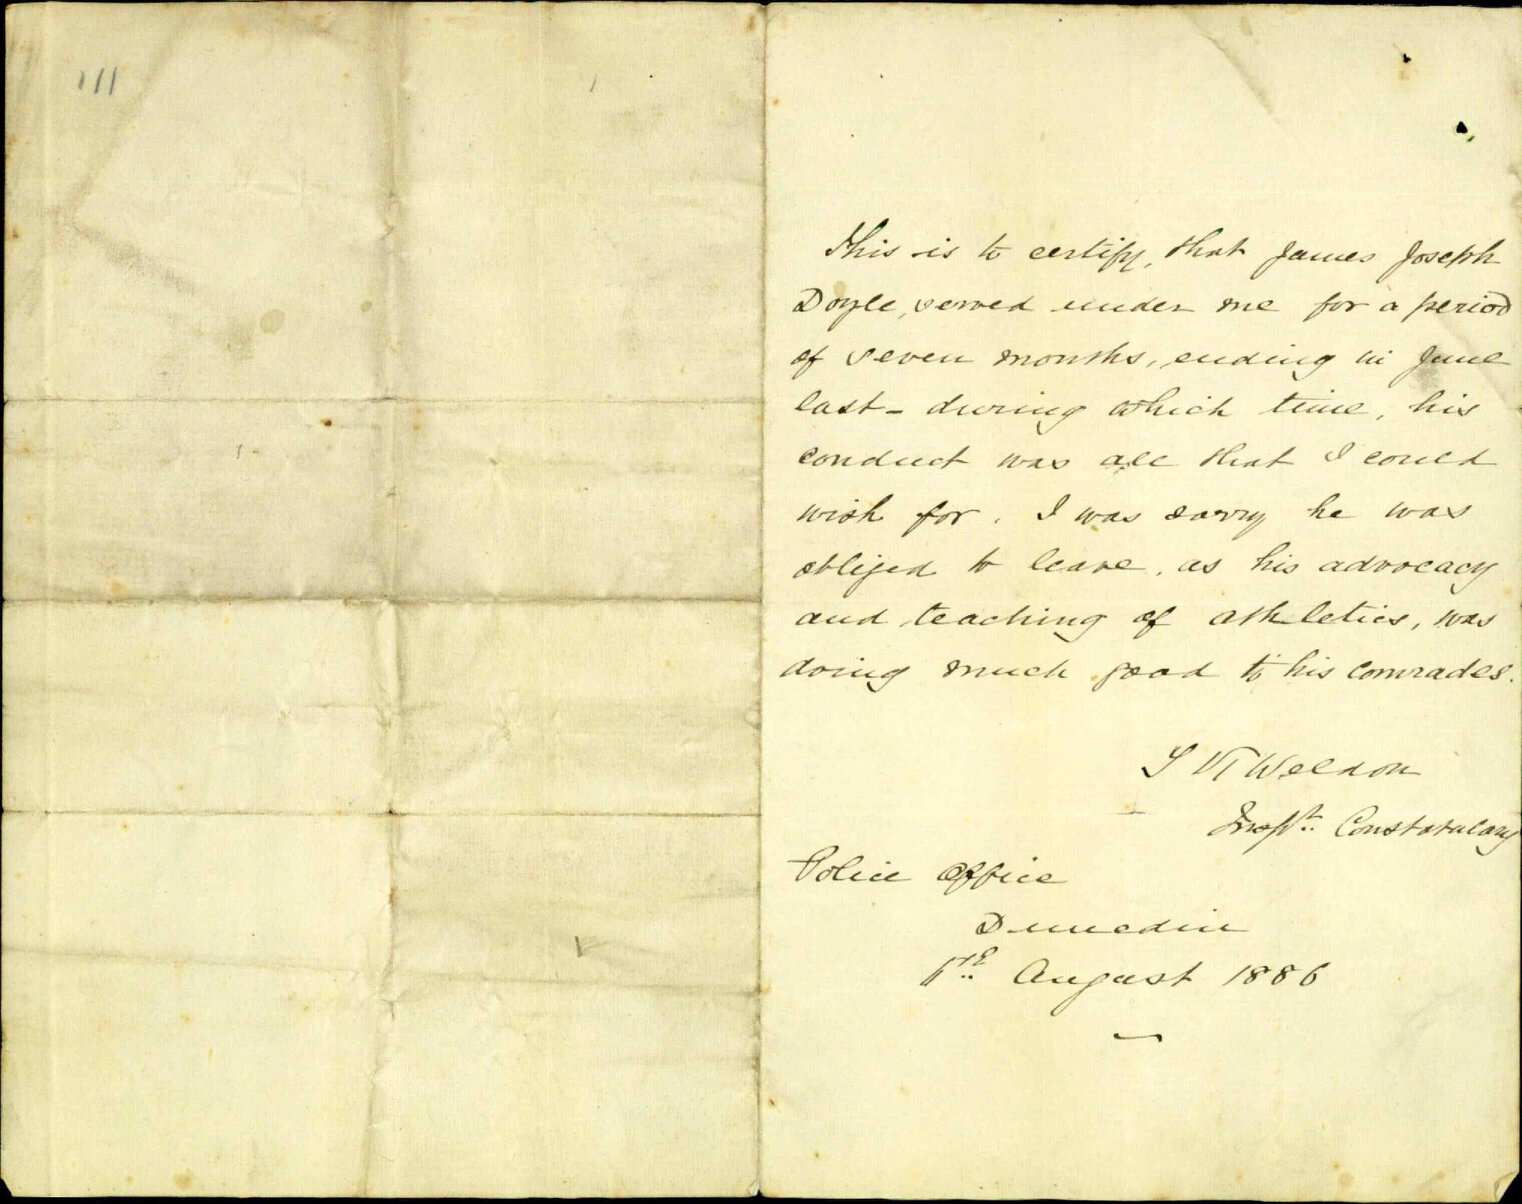 111
This is to certify, that James Joseph
Doyle, served under me for a period
of seven months, ending in June
last - during which time, his
conduct was all that I could
wish for. I was sorry he was
obliged to leave, as his advocacy
and teaching of athletics, was
doing much good to his comrades.
Weldon
Inspt. Constabulary
Police Office
Dunedin
August 1886